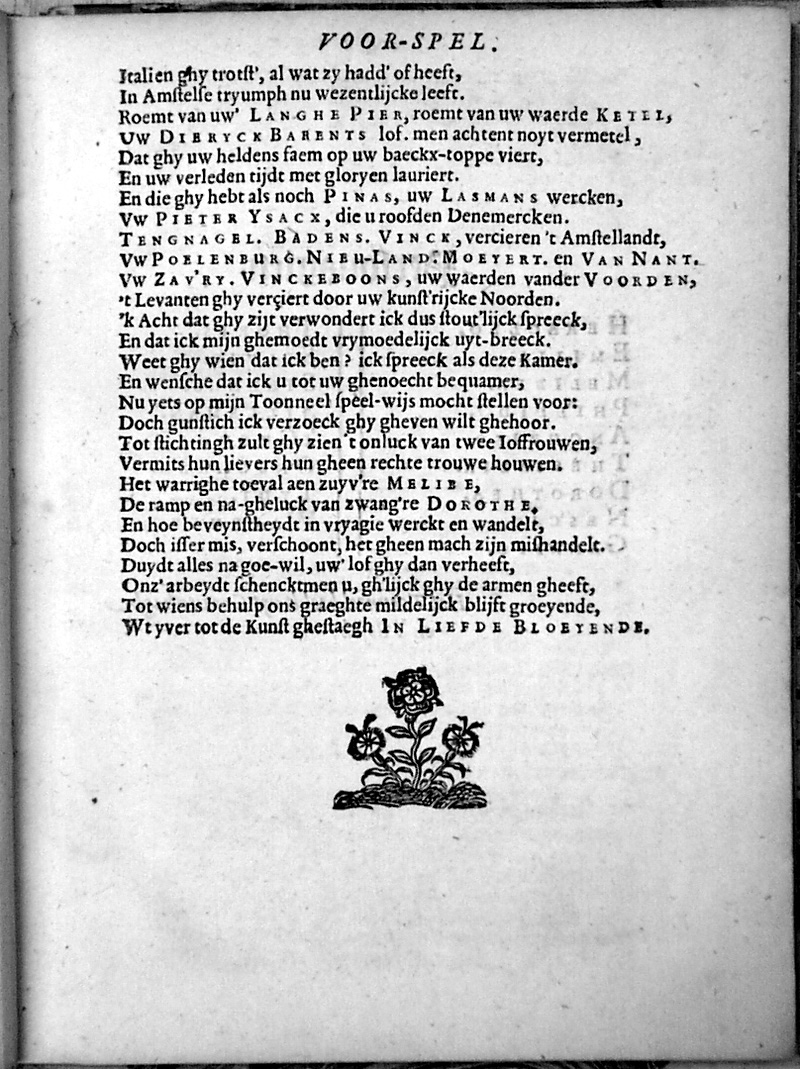 VOOR-SPEL.
Italien ghy trotſt', al wat zy hadd' of heeft,
In Amſtelſe tryumph nu wezentlijcke leeft.
Roemt van uw' LANGHE PIER, roemt van uw waerde KETEL,
Uw DIERYCK BARENTS lof. men acht ent noyt vermetel,
Dat ghy uw heldens faem op uw baeckx-toppe viert,
En uw verleden tijdt met gloryen lauriert.
En die ghy hebt als noch PINAS, uw LASMANS wercken,
Vw PIETER YSACX, die u roofden Denemercken.
TENGNAGEL. BADENS. VINCK, vercieren 't Amſtellandt,
Vw POELENBURG. NIEU-LAND. MOEYERT. en VAN NANT.
Vw ZAV'RY. VINCKEBOONS, uw waerden vander VOORDEN,
't Levanten ghy verçiert door uw kunſt'rijcke Noorden.
'k Acht dat ghy zijt verwondert ick dus ſtout'lijck ſpreeck,
En dat ick mijn ghemoedt vrymoedelijck uyt-breeck.
Weet ghy wien dat ick ben? ick ſpreeck als deze Kamer.
En wenſche dat ick u tot uw ghenoecht bequamer,
Nu yets op mijn Toonneel ſpeel-wijs mocht ſtellen voor:
Doch gunſtich ick verzoeck ghy gheven wilt ghehoor.
Tot ſtichtingh zult ghy zien 't onluck van twee Ioffrouwen,
Vermits hun lievers hun gheen rechte trouwe houwen.
Het warrighe toeval aen zuyv're MELIBE,
De ramp en na-gheluck van zwang're DOROTHE.
En hoe beveynſtheydt in vryagie werckt en wandelt,
Doch iſſer mis, verſchoont, het gheen mach zijn miſhandelt.
Duydt alles na goe-wil, uw' lof ghy dan verheeft,
Onz' arbeydt ſchencktmen u, gh'lijck ghy de armen gheeft,
Tot wiens behulp ons graeghte mildelijck blijft groeyende,
Wt yver tot de Kunſt gheſtaegh IN LIEFDE BLOEYENDE.